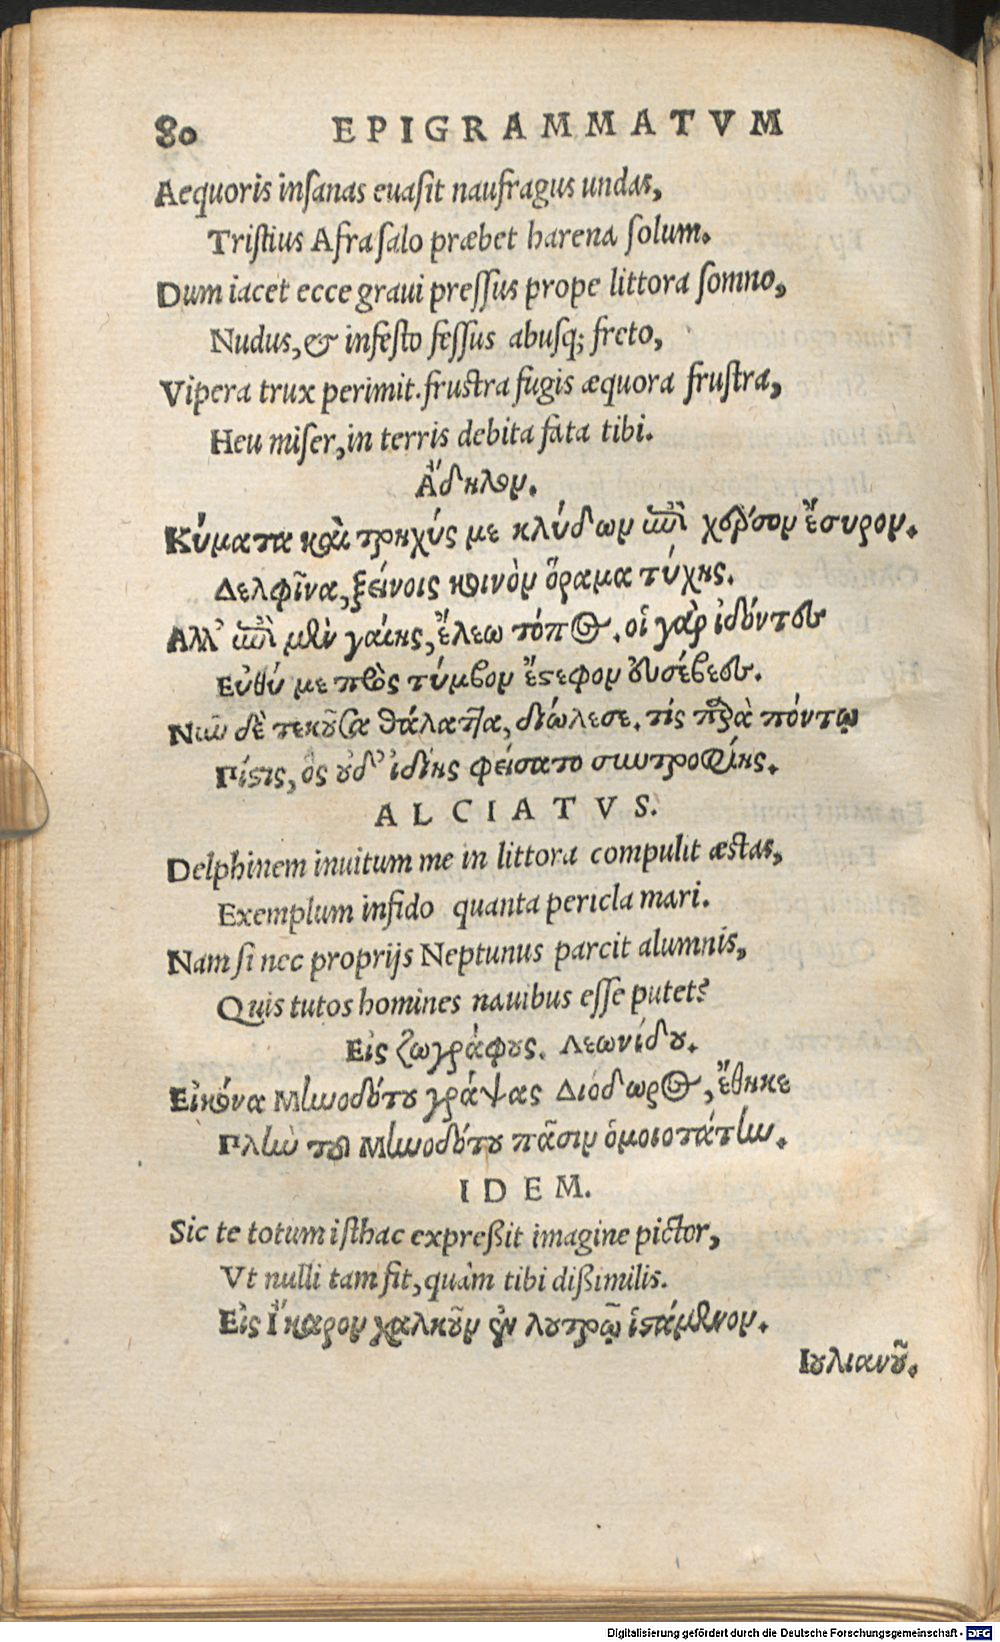 80 EPIGRAMMATVM
Aequoris insanas euasit naufragus undas,
Tristius Afra salo præbet harena solum.
Dum iacet ecce graui pressus prope littora somno,
Nudus, & infesto fessus abusq; freto,
Vipera trux perimit. frustra fugis æquora frustra,
Heu miser, in terris debita fata tibi.
Ἄδηλον.
Κύματα καὶ τρηχύς με κλύδων ἐπὶ χέρσον ἔσυρον.
Δελφῖνα, ξείνοις κοινὸν ὅραμα τύχης.
Αλλ' ἐπὶ μὲν γαίης, ἔλεω τόπος. οἱ γὰρ ἰδόντες
Εὐθύ με πρὸς τύμβον ἔστεφον εὐσέβεες.
Νῦν δὲ τεκοῦσα θάλαττα, διώλεσε. τίς παρὰ πόντῳ
Πίστις, ὃς οὐδ' ἰδίης φείσατο συντροφίης.
ALCIATVS.
Delphinem inuitum me in littora compulit æstas,
Exemplum infido quanta pericla mari.
Nam si nec proprijs Neptunus parcit alumnis,
Quis tutos homines nauibus esse putet?
Εἰς ζωγράφους. Λεωνίδου.
Εἰκόνα Μηνοδότου γράψας Διόδωρος, ἔθηκε
Πλὴν τοῦ Μηνοδότου πᾶσιν ὁμοιοτάτην.
IDEM.
Sic te totum isthac expreßit imagine pictor,
Vt nulli tam fit, quàm tibi dißimilis.
Εἰς Ἴκαρον χαλκοῦν ἐν λουτρῷ ἱστάμενον.
Ιουλιανοῦ.
Digitalisierung gefördert durch die Deutsche Forschungsgemeinschaft - DFG